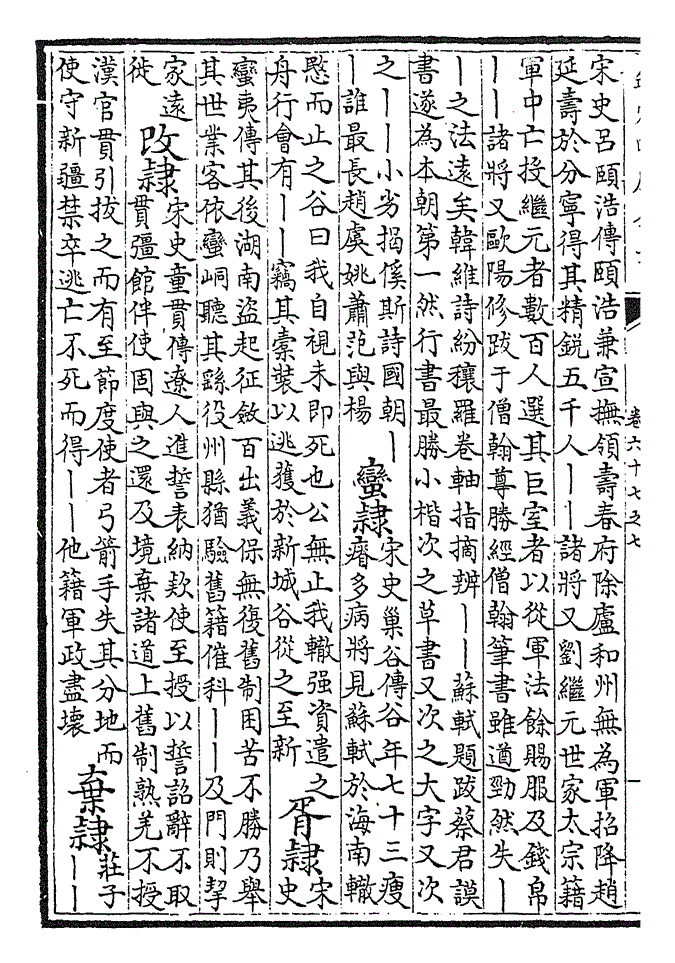 卷六十七之七
宋史呂頤浩傳頤浩兼宣撫領壽春府除盧和州無為軍招降趙
延壽於分寧得其精鋭五千人丨丨諸將又劉繼元世家太宗籍
軍中亡投繼元者數百人選其巨室者以從軍法餘賜服及錢帛
丨丨諸將又歐陽修跋于僧翰尊勝經僧翰筆書雖遒勁然失丨
丨之法遠矣韓維詩紛穰羅卷軸指摘辨丨丨蘇軾題跋蔡君謨
書遂為本朝第一然行書最勝小楷次之草書又次之大字又次
之丨丨小劣揭傒斯詩國朝丨
丨誰最長趙虞姚蕭范與楊
蠻隸
宋史巢谷傳谷年七十三瘦
瘠多病將見蘇軾於海南轍
愍而止之谷曰我自視未即死也公無止我轍强資遣之
舟行會有丨丨竊其橐裝以逃獲於新城谷從之至新
胥隸
宋
史
蠻夷傳其後湖南盜起征斂百出義保無復舊制困苦不勝乃舉
其世業客依蠻峒聽其繇役州縣猶驗舊籍催科丨丨及門則挈
家遠
徙
改隸
宋史童貫傳遼人進誓表納欵使至授以誓詔辭不取
貫彊館伴使固與之還及境棄諸道上舊制熟羌不授
漢官貫引拔之而有至節度使者弓箭手失其分地而
使守新疆禁卒逃亡不死而得丨丨他籍軍政盡壞
棄隸
莊子
丨丨